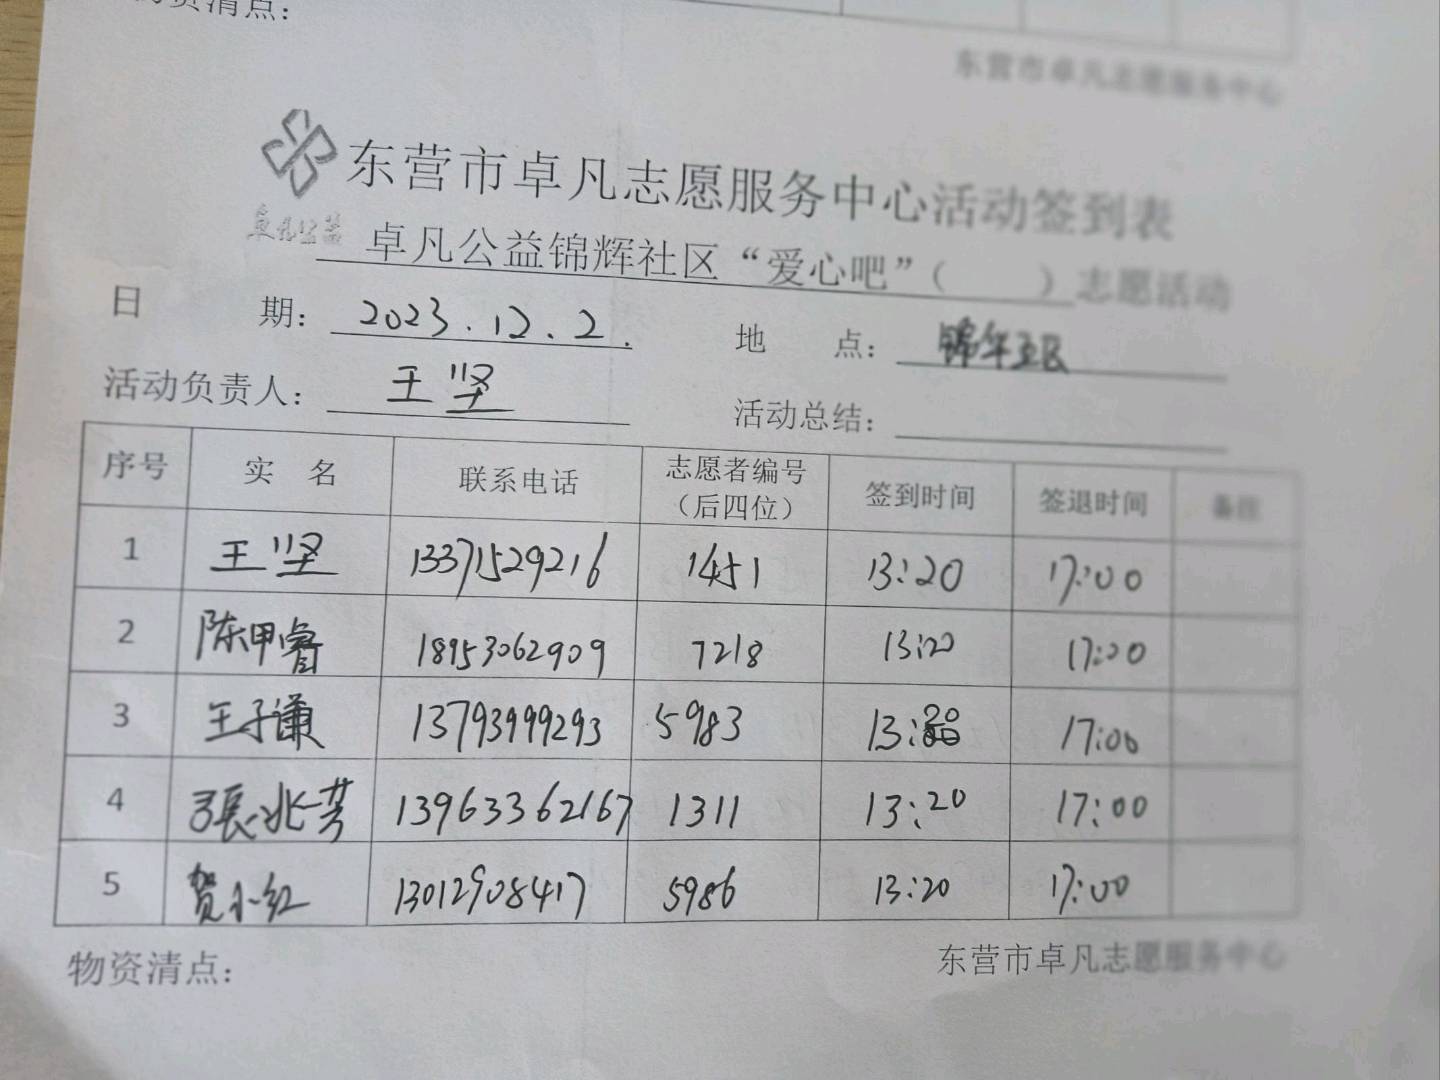 物资清点：
东营市卓凡志愿服务中心
东营市卓凡志愿服务中心活动签到表
卓凡公益
卓凡公益锦辉社区“爱心吧”（ ）志愿活动
日 期： 2023.12.2.
地 点：
活动负责人： 王坚
活动总结：
序号 实 名 联系电话 志愿者编号（后四位） 签到时间 签退时间 备注
1 王坚 13371529216 1451 13:20 17:00
2 陈甲睿 18953062909 7218 13:20 17:00
3 王子谦 13793999293 5983 13:20 17:00
4 張兆芳 13963362167 1311 13:20 17:00
5 贺小红 13012908417 5986 13:20 17:00
物资清点：
东营市卓凡志愿服务中心